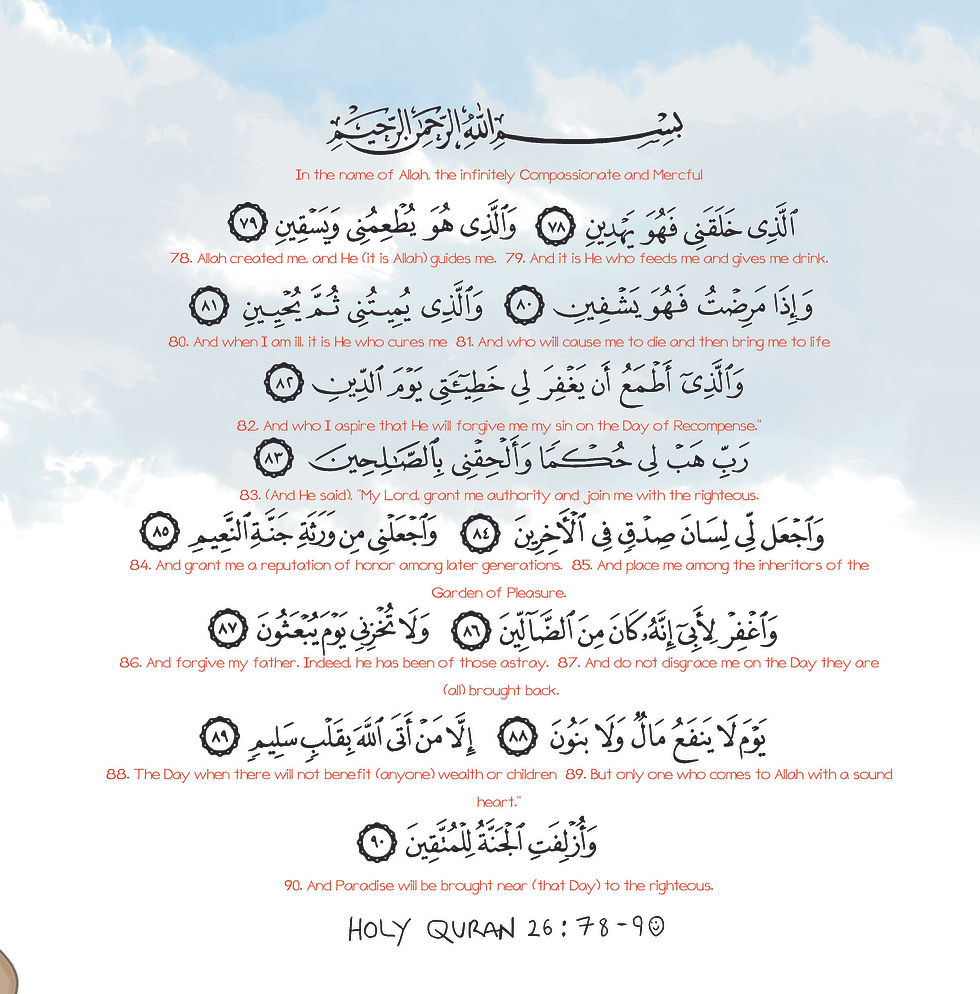 بِسْمِ اللَّهِ الرَّحْمَٰنِ الرَّحِيمِ
In the name of Allah, the infinitely Compassionate and Merciful
ٱلَّذِى خَلَقَنِى فَهُوَ يَهْدِينِ ٧٨ وَٱلَّذِى هُوَ يُطْعِمُنِى وَيَسْقِينِ ٧٩
78. Allah created me, and He (it is Allah) guides me. 79. And it is He who feeds me and gives me drink.
وَإِذَا مَرِضْتُ فَهُوَ يَشْفِينِ ٨٠ وَٱلَّذِى يُمِيتُنِى ثُمَّ يُحْيِينِ ٨١
80. And when I am ill, it is He who cures me 81. And who will cause me to die and then bring me to life
وَٱلَّذِىٓ أَطْمَعُ أَن يَغْفِرَ لِى خَطِيٓـَٔتِى يَوْمَ ٱلدِّينِ ٨٢
82. And who I aspire that He will forgive me my sin on the Day of Recompense."
رَبِّ هَبْ لِى حُكْمًا وَأَلْحِقْنِى بِٱلصَّـٰلِحِينَ ٨٣
83. (And He said), "My Lord, grant me authority and join me with the righteous.
وَٱجْعَل لِّى لِسَانَ صِدْقٍ فِى ٱلْـَٔاخِرِينَ ٨٤ وَٱجْعَلْنِى مِن وَرَثَةِ جَنَّةِ ٱلنَّعِيمِ ٨٥
84. And grant me a reputation of honor among later generations. 85. And place me among the inheritors of the
Garden of Pleasure.
وَٱغْفِرْ لِأَبِىٓ إِنَّهُۥ كَانَ مِنَ ٱلضَّآلِّينَ ٨٦ وَلَا تُخْزِنِى يَوْمَ يُبْعَثُونَ ٨٧
86. And forgive my father. Indeed, he has been of those astray. 87. And do not disgrace me on the Day they are
(all) brought back.
يَوْمَ لَا يَنفَعُ مَالٌ وَلَا بَنُونَ ٨٨ إِلَّا مَنْ أَتَى ٱللَّهَ بِقَلْبٍ سَلِيمٍ ٨٩
88. The Day when there will not benefit (anyone) wealth or children 89. But only one who comes to Allah with a sound
heart."
وَأُزْلِفَتِ ٱلْجَنَّةُ لِلْمُتَّقِينَ ٩٠
90. And Paradise will be brought near (that Day) to the righteous.
HOLY QURAN 26:78-90